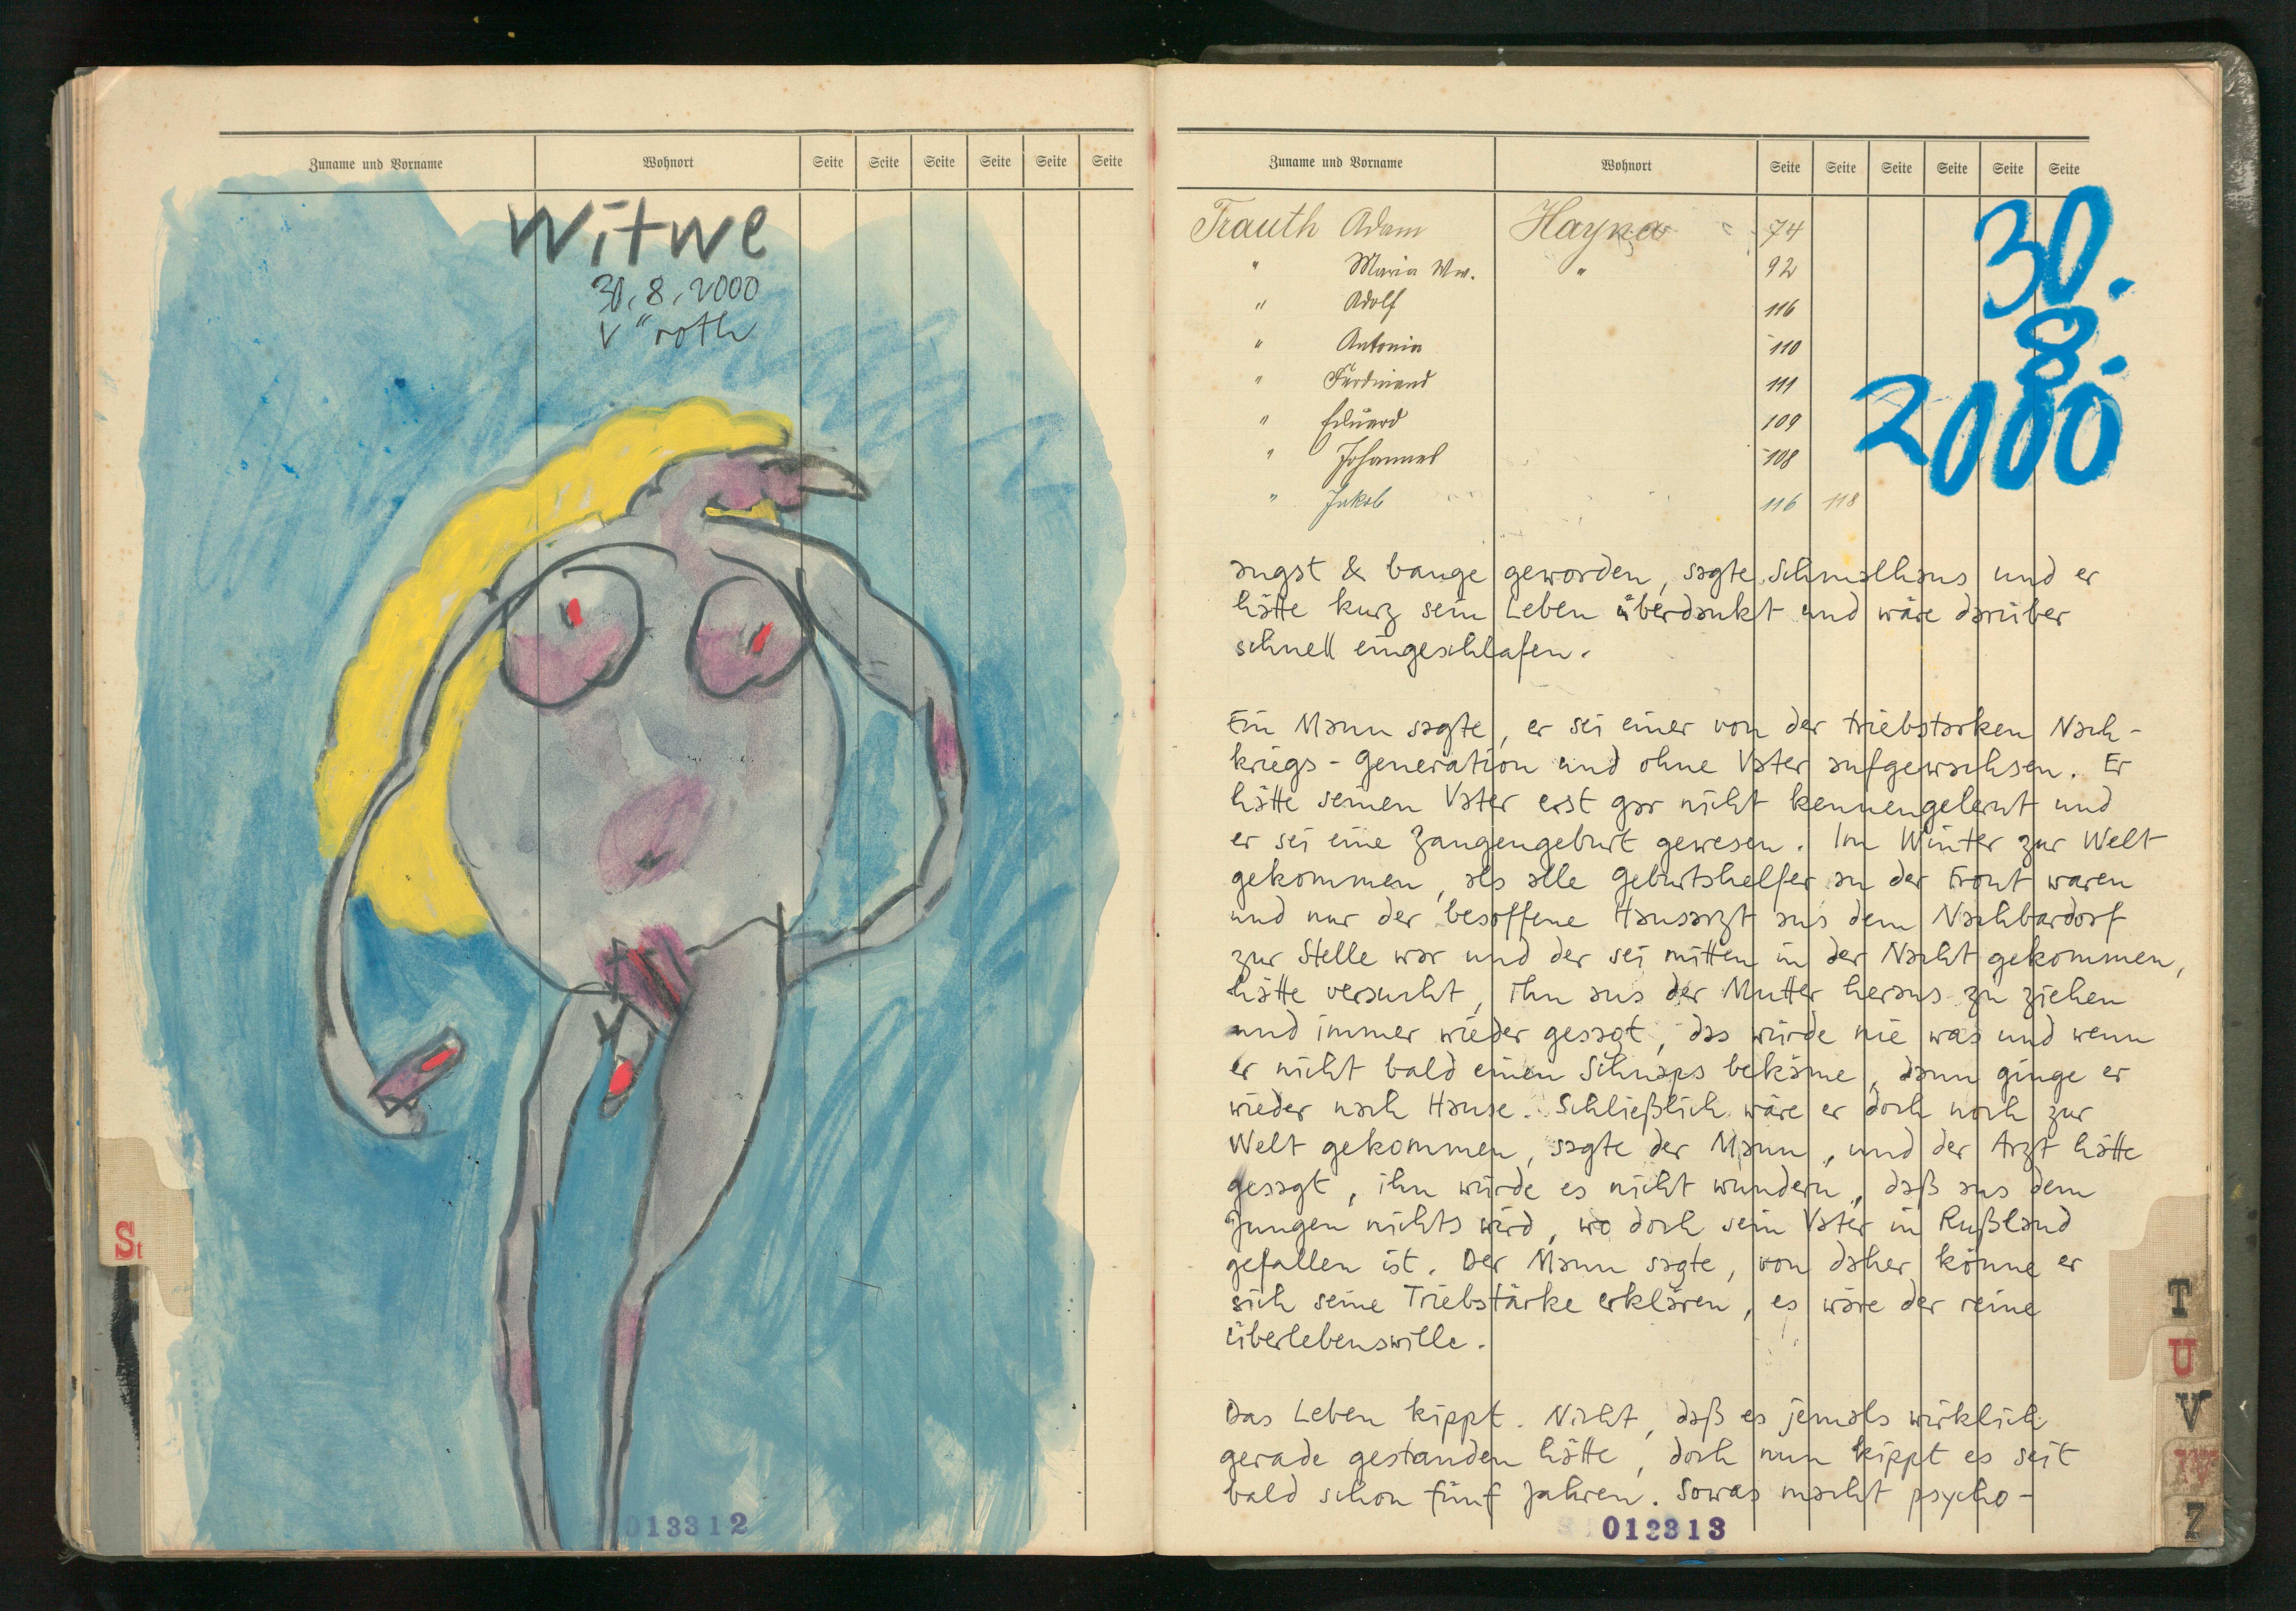 Zuname und Vorname Wohnort Seite Seite Seite Seite Seite Seite
Witwe
30.8.2000
V"roth
St
013312
Zuname und Vorname Wohnort Seite Seite Seite Seite Seite Seite
Trauth Adam Hayna 74
" Maria Ww. " 92
" Adolf 116
" Antonia 110
" Ferdinand 111
" Eduard 109
" Johannes 108
" Jakob 116 118
30.
8.
2000
angst & bange geworden, sagte Schmalhans und er
hätte kurz sein Leben überdankt und wäre darüber
schnell eingeschlafen.
Ein Mann sagte, er sei einer von der triebstarken Nach-
kriegs-Generation und ohne Vater aufgewachsen. Er
hätte seinen Vater erst gar nicht kennengelernt und
er sei eine Zangengeburt gewesen. Im Winter zur Welt
gekommen, als alle Geburtshelfer an der Front waren
und nur der besoffene Hausarzt aus dem Nachbardorf
zur Stelle war und der sei mitten in der Nacht gekommen,
hätte versucht, ihn aus der Mutter heraus zu ziehen
und immer wieder gesagt, das würde nie was und wenn
er nicht bald einen Schnaps bekäme, dann ginge er
wieder nach Hause. Schließlich wäre er doch noch zur
Welt gekommen, sagte der Mann, und der Arzt hätte
gesagt, ihn würde es nicht wundern, daß aus dem
Jungen nichts wird, wo doch sein Vater in Rußland
gefallen ist. Der Mann sagte, von daher könne er
sich seine Triebstärke erklären, es wäre der reine
Überlebenswille.
Das Leben kippt. Nicht, daß es jemals wirklich
gerade gestanden hätte, doch nun kippt es seit
bald schon fünf Jahren. Sowas macht psycho-
013313
T
U
V
W
Z